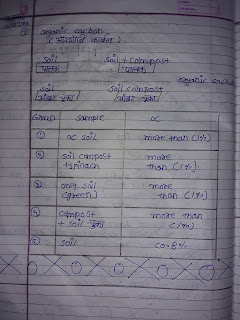 organic carbon
soil soil + compost
पालक पालक
organic carbon
soil soil compost
Group sample oc
① oc soil more than (1%)
② soil compost more
+ spinach than (1%)
③ only soil more
(green) than (1%)
④ compost more than
+ soil (1%)
⑤ soil (0.8%